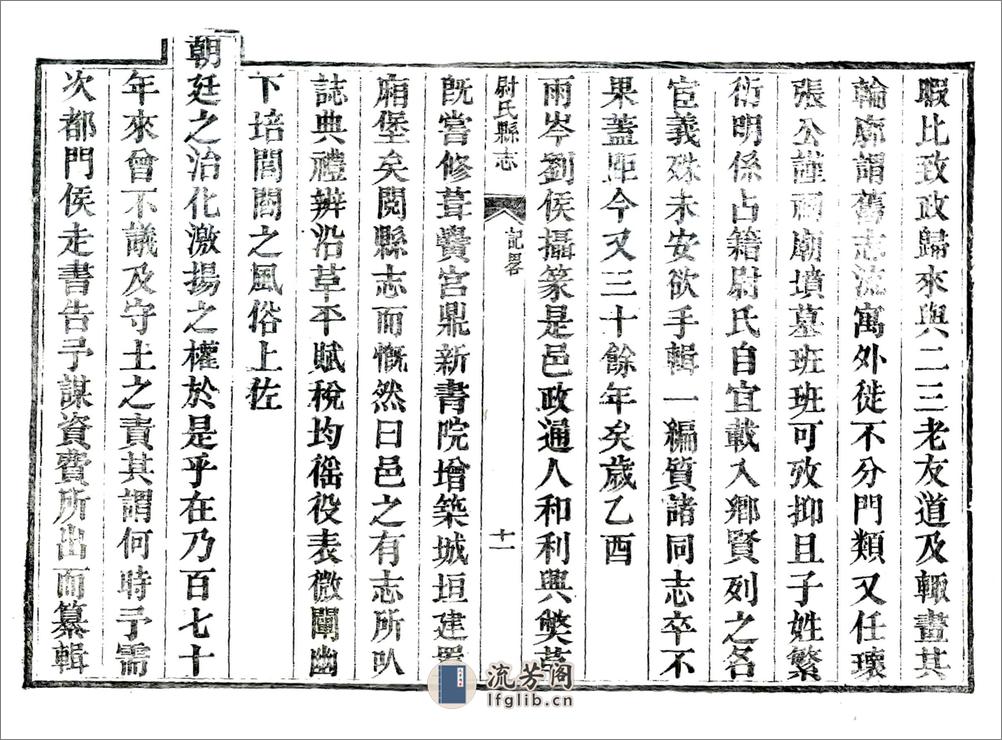 暇比致政歸來與二三老友道及輙畫其
輪廓謂舊志流寓外徙不分門類又任瓌
張公謹祠廟墳墓班班可攷抑且子姓繁
衍明係占籍尉氏自宜載入鄕賢列之各
宦義殊未安欲手輯一編質諸同志卒不
果蓋距今又三十餘年矣歲乙酉
雨岑劉侯攝篆是邑政通人和利興獘革
尉氏縣志
記畧
十一
旣嘗修葺黌宮鼎新書院增築城垣建置
廂堡矣閱縣志而慨然曰邑之有志所㕥
誌典禮辨沿革平賦稅均徭役表微闡幽
下培閭閻之風俗上佐
朝廷之治化激揚之權於是乎在乃百七十
年來曾不議及守土之責其謂何時予需
次都門侯走書告予謀資費所出而纂輯
流芳阁
lfglib.cn